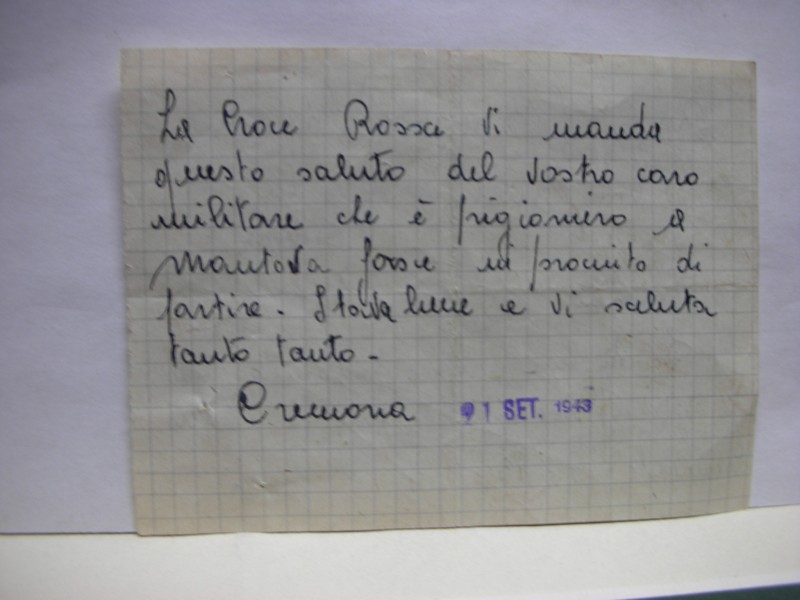 La Croce Rossa vi manda
questo saluto del vostro caro
militare che è prigioniero a
Mantova forse in procinto di
partire. Stava bene e vi saluta
tanto tanto -
Cremona 21 SET. 1943